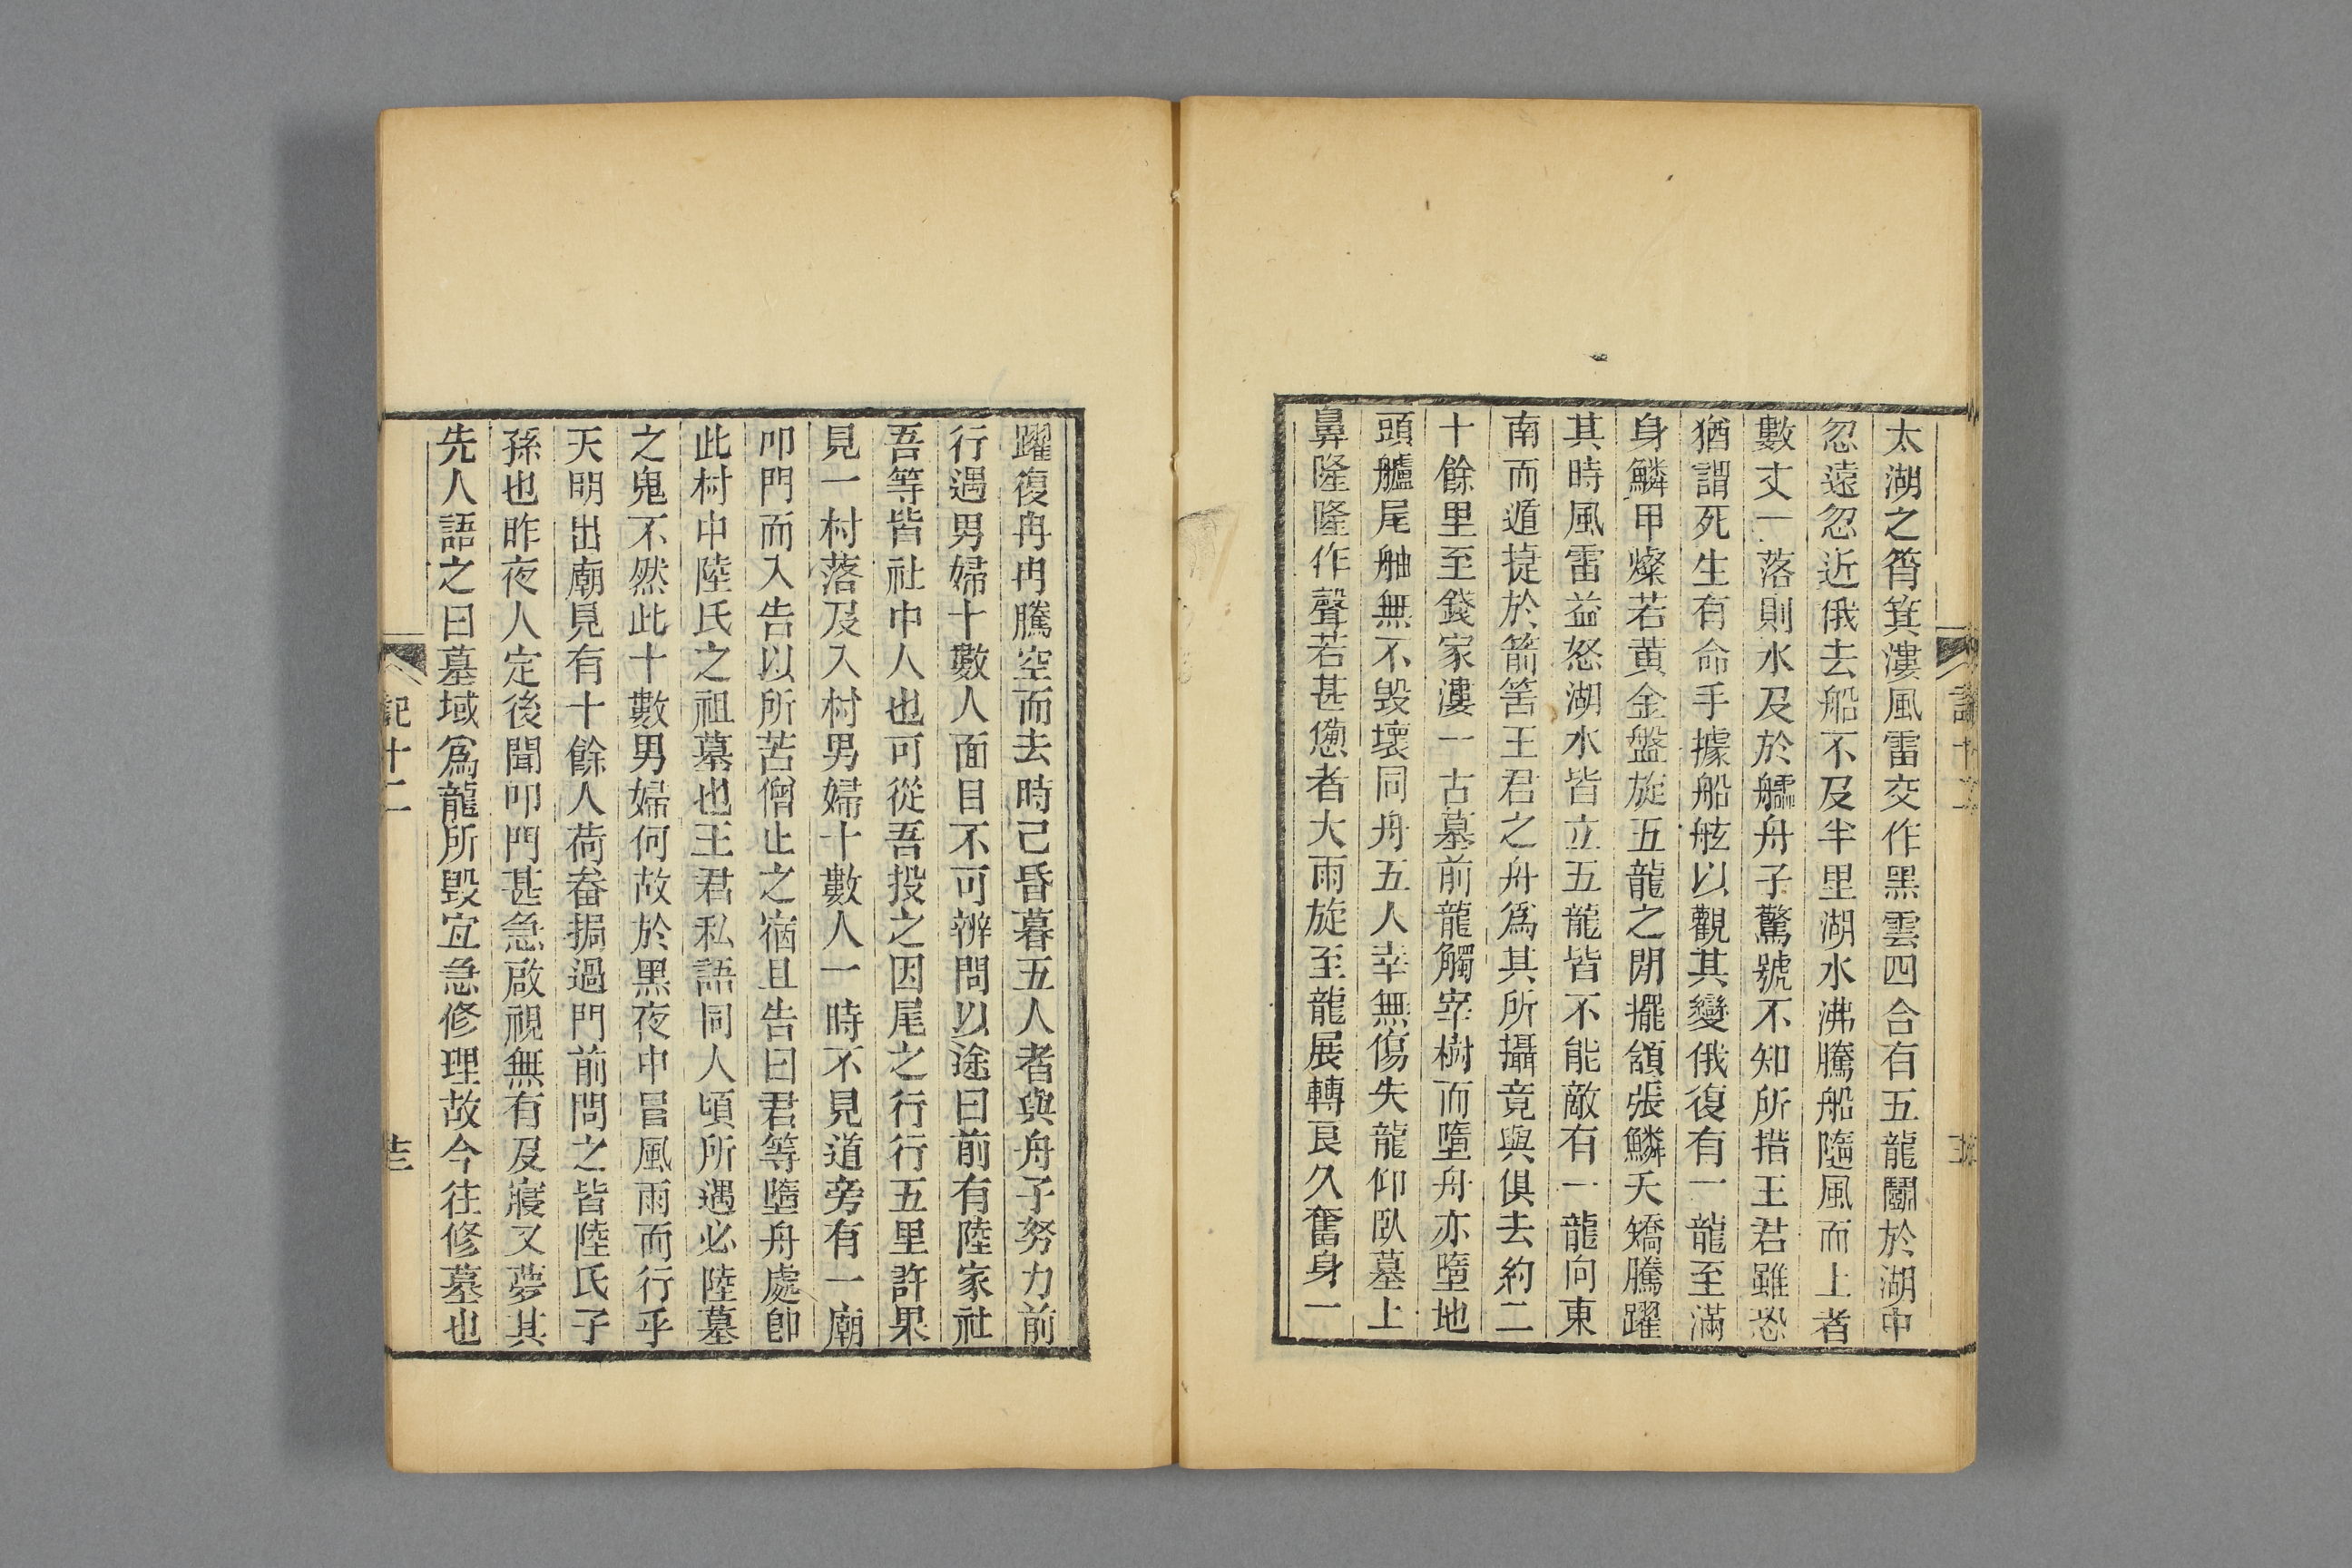 太湖之筲箕漊風雷交作黑雲四合有五龍鬬於湖中
忽遠忽近俄去船不及半里湖水沸騰船隨風而上者
數丈一落則水及於艫舟子驚號不知所措王君雖恐
猶謂死生有命手據船舷以觀其變俄復有一龍至滿
身鱗甲燦若黃金盤旋五龍之閒擺頷張鱗夭矯騰躍
其時風雷益怒湖水皆立五龍皆不能敵有一龍向東
南而遁㨗於箭筈王君之舟爲其所攝竟與俱去約二
十餘里至錢家漊一古墓前龍觸宰樹而墮舟亦墮地
頭艫尾舳無不毀壞同舟五人幸無傷失龍仰臥墓上
鼻隆隆作聲若甚憊者大雨旋至龍展轉良久奮身一
躍復冉冉騰空而去時已昏暮五人者與舟子努力前
行遇男婦十數人面目不可辨問以途曰前有陸家社
吾等皆社中人也可從吾投之因尾之行行五里許果
見一村落及入村男婦十數人一時不見道旁有一廟
叩門而入告以所苦僧止之宿且告曰君等墮舟處卽
此村中陸氏之祖墓也王君私語同人頃所遇必陸墓
之鬼不然此十數男婦何故於黑夜中冒風雨而行乎
天明出廟見有十餘人荷畚挶過門前問之皆陸氏子
孫也昨夜人定後聞叩門甚急啟視無有及寢又夢其
先人語之曰墓域爲龍所毀宜急修理故今往修墓也
記十二